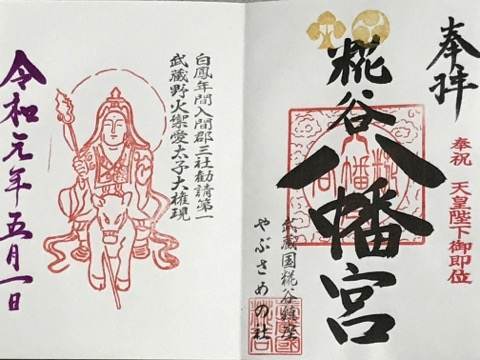 奉拝
奉祝 天皇陛下御即位
糀谷八幡宮
武蔵国糀谷鎮座
やぶさめの社
白鳳年間入間郡三社勧請第一
武蔵野火禦愛太子大権現
令和元年五月一日